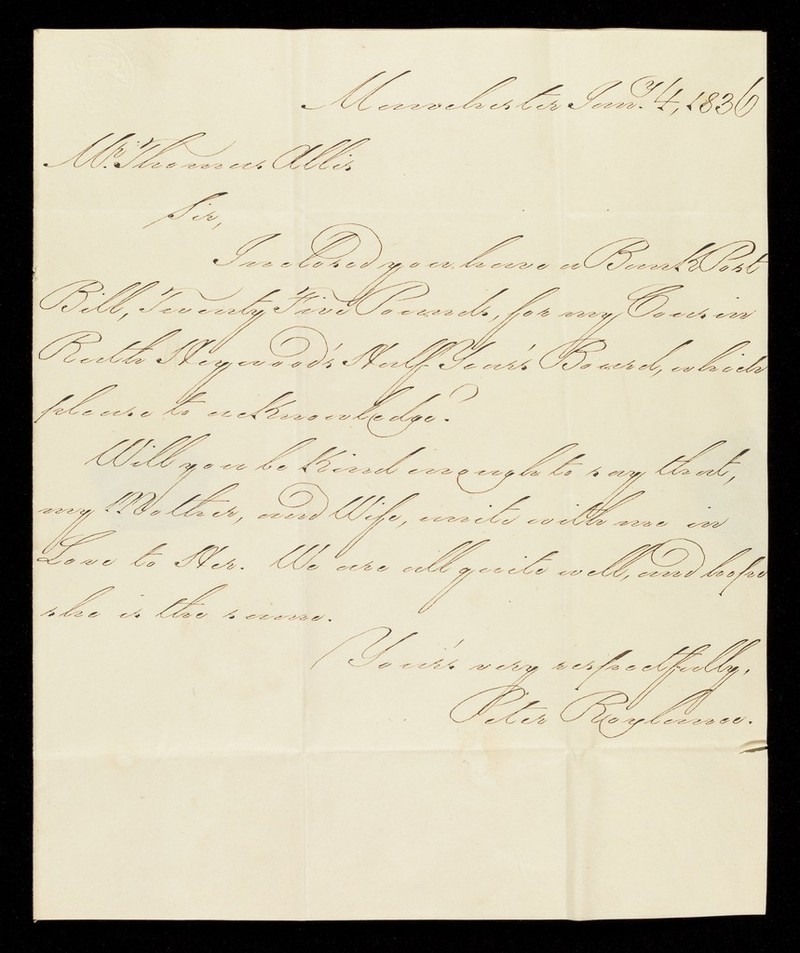 Manchester Jan.y 4, 1836
Mr. Thomas Allis
Sir,
Inclosed you have a Bank Post
Bill, Twenty Five Pounds, for my Cousin
Ruth Heywood's Half Year's Board, which
please to acknowledge.
Will you be kind enough to say that,
my Mother, and Wife, unite with me in
Love to Her. We are all quite well, and hope
she is the same.
Your's very respectfully,
Peter Roylance.